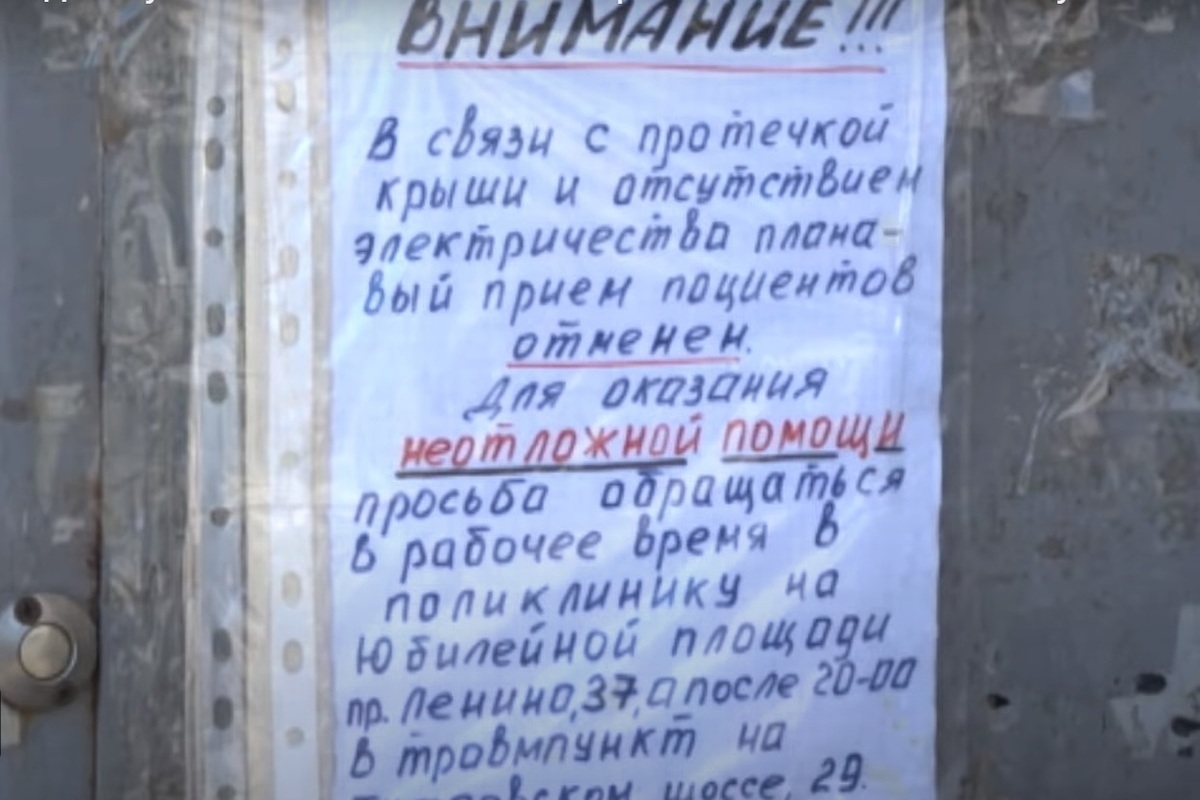 ВНИМАНИЕ!!!
В связи с протечкой
крыши и отсутствием
электричества плана-
вый прием пациентов
отменен.
Для оказания
неотложной помощи
просьба обращаться
в рабочее время в
поликлинику на
Юбилейной площади
пр. Ленина, 37, а после 20-00
в травмпункт на
шоссе, 29.